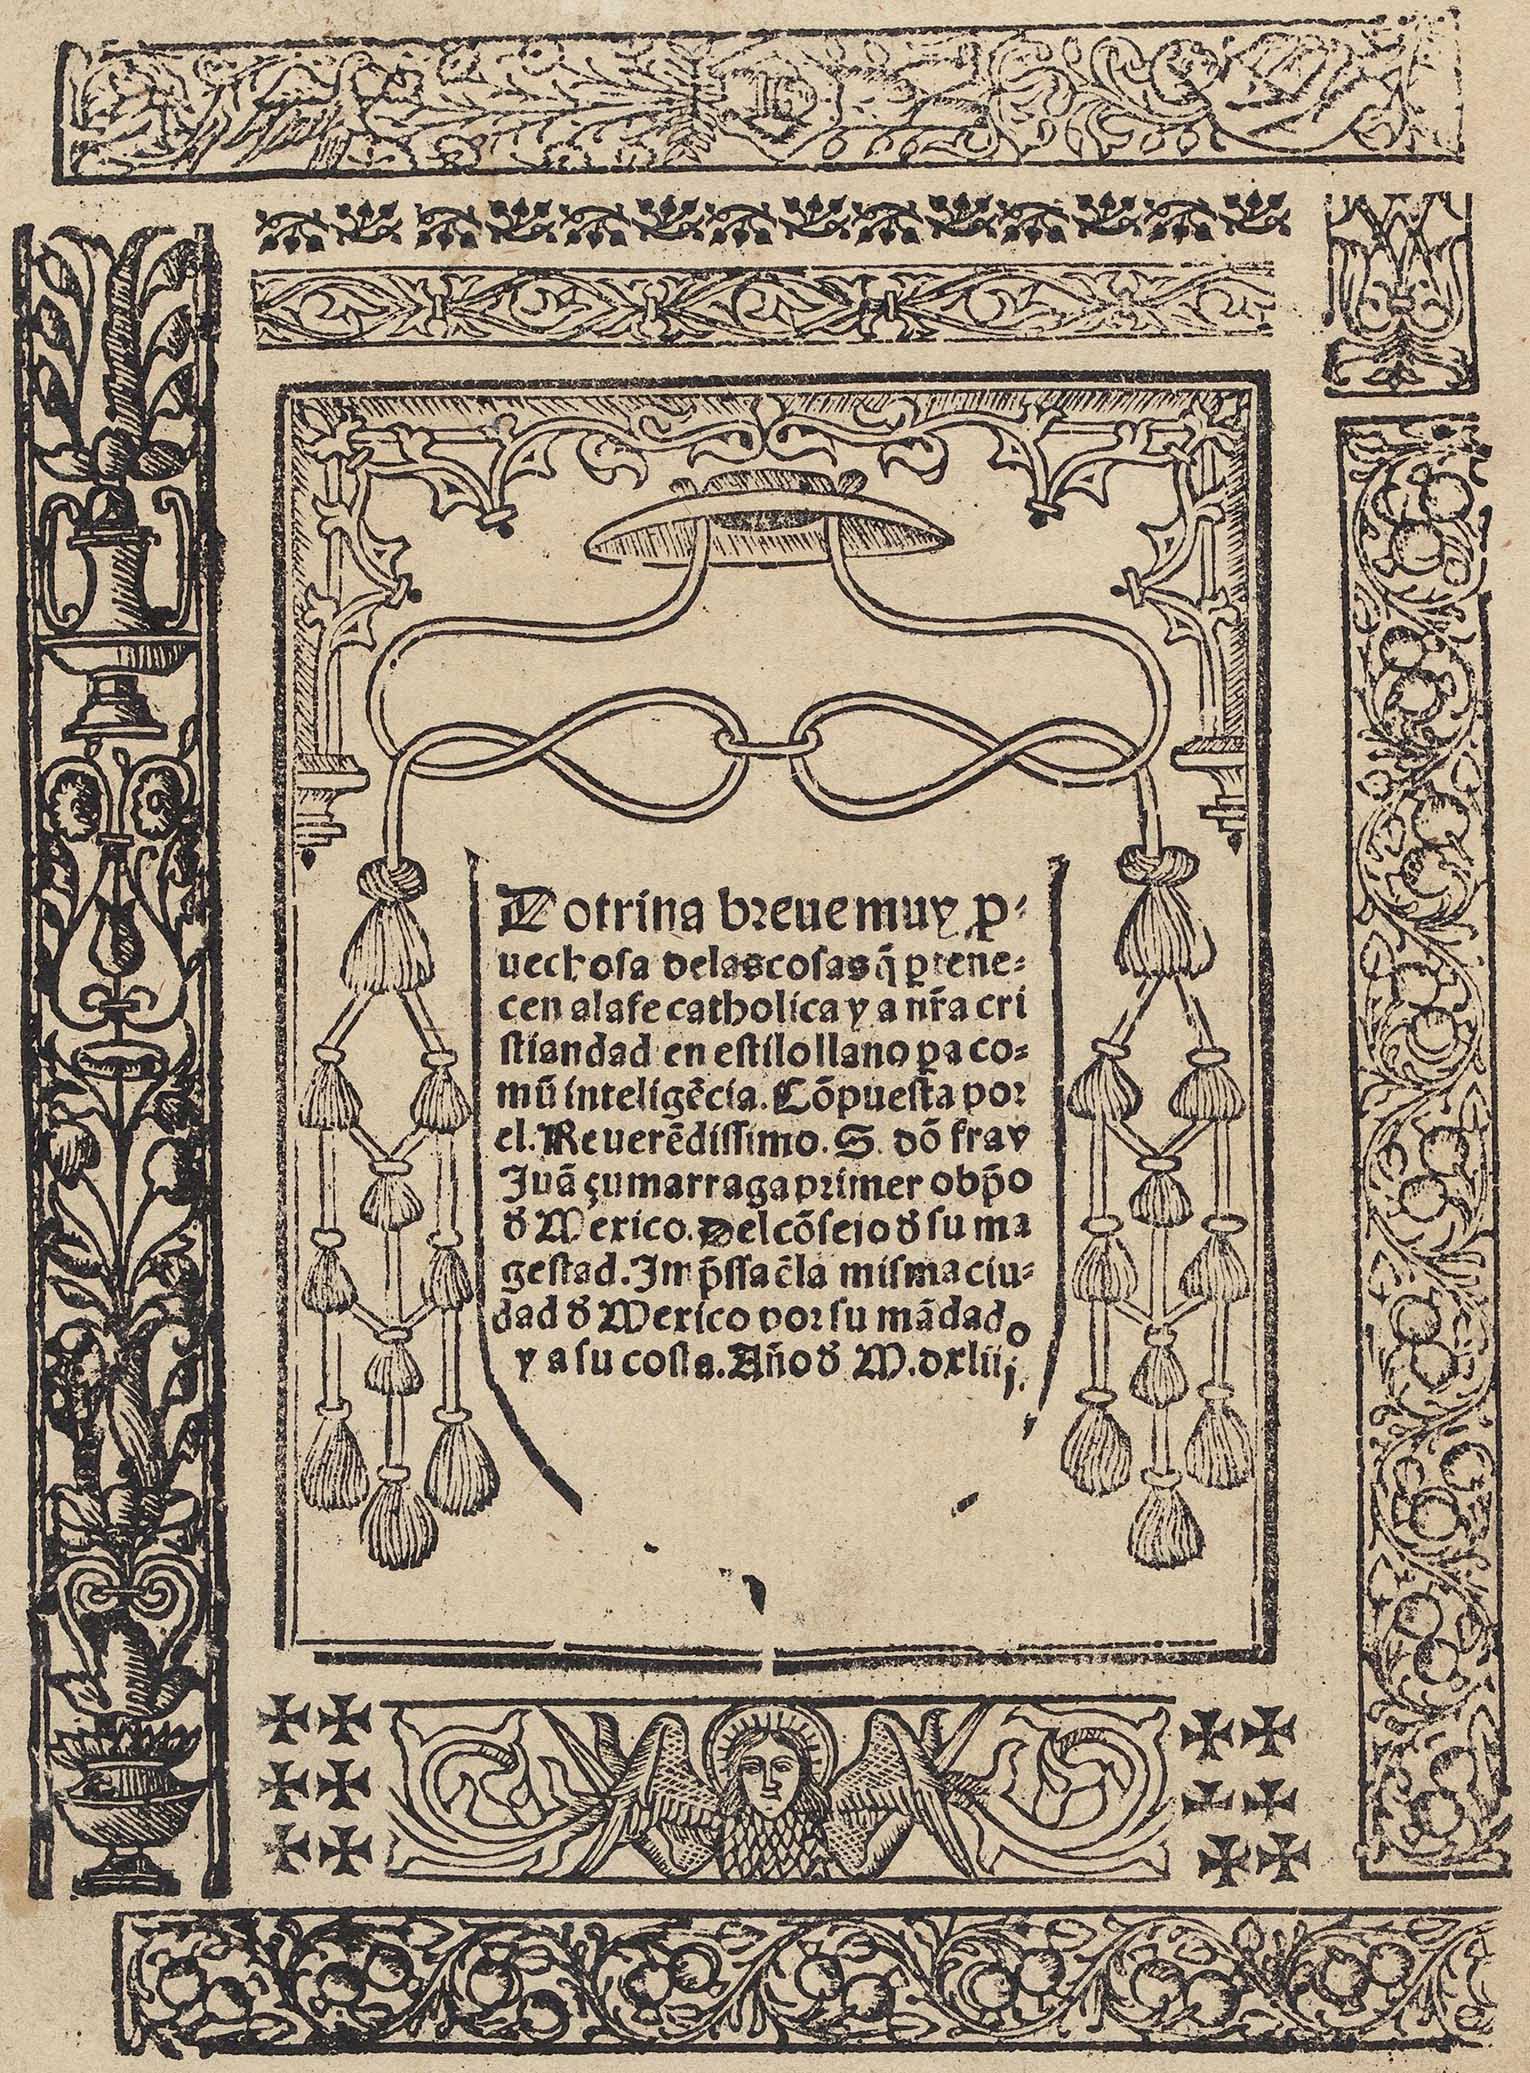 Dotrina breue muy p̱-
uechosa delas cosas q̃ ꝑtene-
cen ala fe catholica y a nr̃a cri
stiandad en estilo llano ꝑa co-
mũ inteligẽcia. Cõpuesta por
el. Reuerẽdissimo. S. dõ fray
Juã çumarraga primer obp̃o
d̾ Mexico. Del cõsejo d̾ su ma
gestad. Imp̃ssa ẽla misma ciu-
dad d̾ Mexico por su mãdado
y a su costa. Año d̾ M.dxliij.